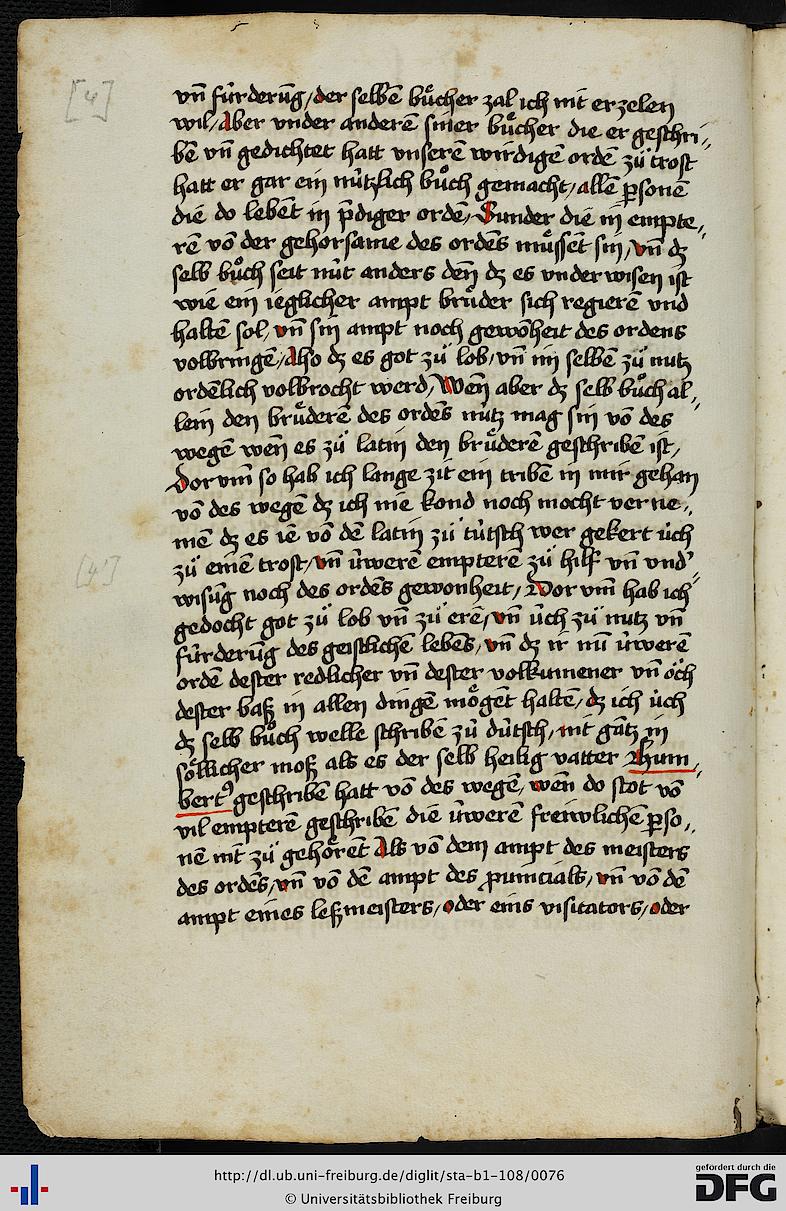 [4]
vn̄ fúrderūg / der selbē bůcher zal ich nit erzelen
wil / Aber vnder anderē siner bůcher die er geschri⸗
bē vn̄ gedichtet hatt vnserē wirdigē ordē zů trost
hatt er gar ein nútzlich bůch gemacht / allē ꝑsonē
die do lebēt in p̄diger ordē / Sunder die in empte⸗
rē vō der gehorsame des ordēs mússēt sin / vn̄ dz
selb bůch seit nút anders den̄ dz es vnderwisen ist
wie ein ieglicher ampt brůder sich regierē vnd
haltē sol / vn̄ sin ampt noch gewōheit des ordens
volbringē / Also dz es got zů lob / vn̄ im selbē zů nutz
ordēlich volbrocht werd / Wen̄ aber dz selb bůch al⸗
lein den brůderē des ordēs nútz mag sin vō des
wegē wen̄ es zů latin den brůderē geschribē ist /
Dor vm̄ so hab ich lange zit ein tribē in mir gehan
vō des wegē dz ich nie kond noch mocht verne⸗
mē dz es ie vō dē latin zů tútsch wer gekert úch
zů einē trost / vn̄ úwerē empterē zů hilf vn̄ vnd'
wisūg noch des ordēs gewonheit / Dor vm̄ hab ich
gedocht got zů lob vn̄ zů erē / vn̄ úch zů nutz vn̄
fúrderūg des geistlichē lebēs / vn̄ dz ir nū úwerē
ordē dester redlicher vn̄ dester volkumener vn̄ öch
dester baß in allen dingē mögēt haltē / dz ich úch
dz selb bůch welle schribē zů dútsch / nit gātz in
söllicher moß als es der selb heilig vatter Hum⸗
bertꝰ geschribē hatt vō des wegē / wen̄ do stot vō
vil empterē geschribē die úwerē freiwlichē ꝑso⸗
nē nit zů gehörēt Als vō dem ampt des meisters
des ordēs / vn̄ vō dē ampt des ꝓuincials / vn̄ vō dē
ampt eines leßmeisters / oder eins visitators / oder
[4']
http://dl.ub.uni-freiburg.de/diglit/sta-b1-108/0076
© Universitätsbibliothek Freiburg
gefördert durch die
DFG